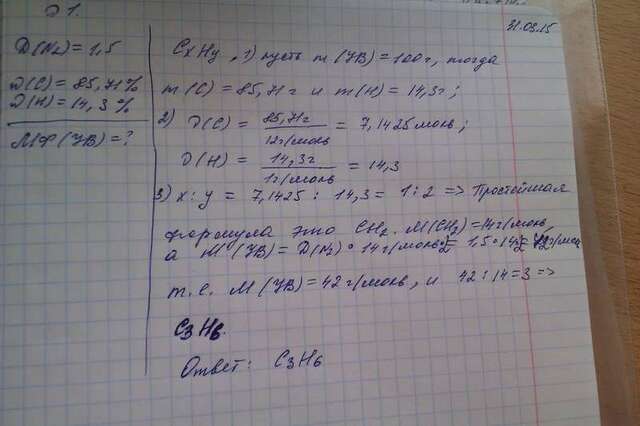 31.03.15
D(N₂) = 1,5
Д(C) = 85,71%
Д(H) = 14,3%
МФ(УВ) = ?
CxHy, 1) пусть m(УВ) = 100г, тогда
m(C) = 85,71г и m(H) = 14,3г;
2) ν(C) = 85,71г / 12г/моль = 7,1425 моль;
ν(H) = 14,3г / 1г/моль = 14,3
3) x : y = 7,1425 : 14,3 = 1 : 2 => Простейшая
формула это CH₂. M(CH₂) = 14г/моль,
а M(УВ) = D(N₂) · 14г/моль · 2 = 1,5 · 14 · 2 =
т.е. M(УВ) = 42 г/моль, и 42 : 14 = 3 =>
C₃H₆.
Ответ: C₃H₆